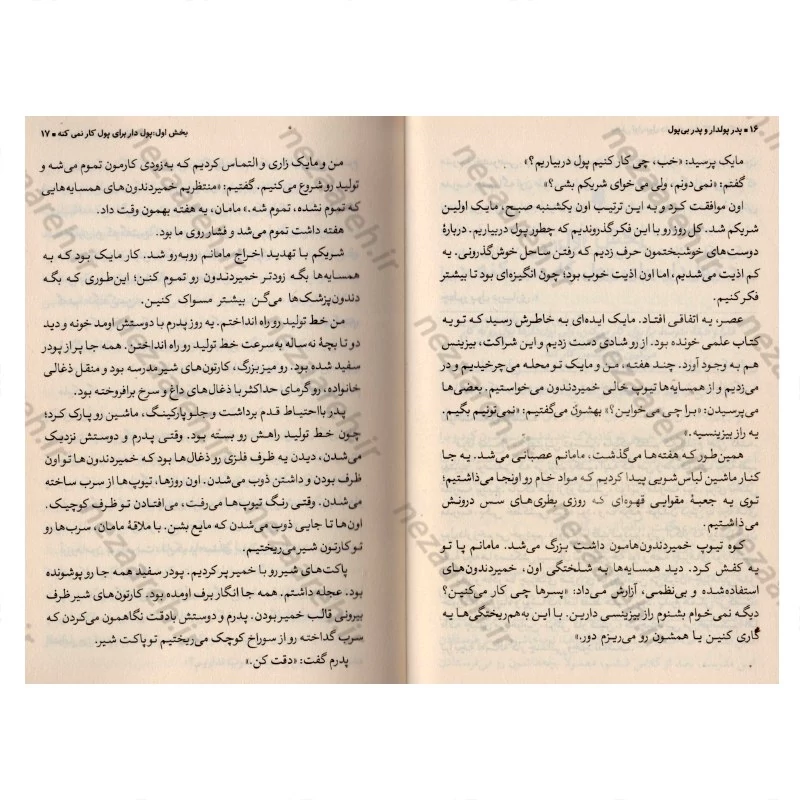 ۱۶ ■ پدر پولدار و پدر بی‌پول
مایک پرسید: «خب، چی کار کنیم پول دربیاریم؟»
گفتم: «نمی‌دونم، ولی می‌خوای شریکم بشی؟»
اون موافقت کرد و به این ترتیب اون یکشنبه صبح، مایک اولین
شریکم شد. کل روز رو با این فکر گذروندیم که چطور پول دربیاریم. دربارهٔ
دوست‌های خوشبختمون حرف زدیم که رفتن ساحل خوش‌گذرونی. یه
کم اذیت می‌شدیم، اما اون اذیت خوب بود؛ چون انگیزه‌ای بود تا بیشتر
فکر کنیم.
عصر، یه اتفاقی افتاد. مایک ایده‌ای به خاطرش رسید که تو یه
کتاب علمی خونده بود. از رو شادی دست زدیم و این شراکت، بیزینسی
هم به وجود آورد. چند هفته، من و مایک تو محله می‌چرخیدیم و در
می‌زدیم و از همسایه‌ها تیوپ خالی خمیردندون می‌خواستیم. بعضی‌ها
می‌پرسیدن: «برا چی می‌خواین؟» بهشون می‌گفتیم: «نمی‌تونیم بگیم.
یه راز بیزینسیه.»
همین‌طور که هفته‌ها می‌گذشت، مامانم عصبانی می‌شد. یه جا
کنار ماشین لباس‌شویی پیدا کردیم که مواد خام رو اونجا می‌ذاشتیم؛
توی یه جعبهٔ مقوایی قهوه‌ای که روزی بطری‌های سس درونش
می‌ذاشتیم.
کوه تیوپ خمیردندون‌هامون داشت بزرگ می‌شد. مامانم پا تو
یه کفش کرد. دید همسایه‌ها به شلختگی اون، خمیردندون‌های
استفاده‌شده و بی‌نظمی، آزارش می‌داد: «پسرها چی کار می‌کنین؟
دیگه نمی‌خوام بشنوم راز بیزینسی دارین. با این به‌هم‌ریختگی‌ها یه
کاری کنین یا همشون رو می‌ریزم دور.»
بخش اول: پول دار برای پول کار نمی کنه ■ ۱۷
من و مایک زاری و التماس کردیم که به‌زودی کارمون تموم می‌شه و
تولید رو شروع می‌کنیم. گفتیم: «منتظریم خمیردندون‌های همسایه‌هایی
که تموم نشده، تموم شه.» مامان، یه هفته بهمون وقت داد.
هفته داشت تموم می‌شد و فشار روی ما بود.
شریکم با تهدید اخراج مامانم روبه‌رو شد. کار مایک بود که به
همسایه‌ها بگه زودتر خمیردندون رو تموم کنن؛ این‌طوری که بگه
دندون‌پزشک‌ها می‌گن بیشتر مسواک کنین.
من خط تولید رو راه انداختم. یه روز پدرم با دوستش اومد خونه و دید
دو تا بچهٔ نه ساله به‌سرعت خط تولید رو راه انداختن. همه جا پر از پودر
سفید شده بود. رو میز بزرگ، کارتون‌های شیر مدرسه بود و منقل ذغالی
خانواده، رو گرمای حداکثر با ذغال‌های داغ و سرخ برافروخته بود.
پدر بااحتیاط قدم برداشت و جلو پارکینگ، ماشین رو پارک کرد؛
چون خط تولید راهش رو بسته بود. وقتی پدرم و دوستش نزدیک
می‌شدن، دیدن یه ظرف فلزی رو ذغال‌ها بود که خمیردندون‌ها تو اون
ظرف بودن و داشتن ذوب می‌شدن. اون روزها، تیوپ‌ها از سرب ساخته
می‌شدن. وقتی رنگ تیوپ‌ها می‌رفت، می‌افتادن تو ظرف کوچیک.
اون‌ها تا جایی ذوب می‌شدن که مایع بشن. با ملاقهٔ مامان، سرب‌ها رو
تو کارتون شیر می‌ریختیم.
پاکت‌های شیر رو با خمیر پر کردیم. پودر سفید همه جا رو پوشونده
بود. عجله داشتم. همه جا انگار برف اومده بود. کارتون‌های شیر ظرف
بیرونی قالب خمیر بودن. پدرم و دوستش بادقت نگاهمون می‌کردن که
سرب گداخته رو از سوراخ کوچک می‌ریختیم تو پاکت شیر.
پدرم گفت: «دقت کن.»
nezaareh.ir